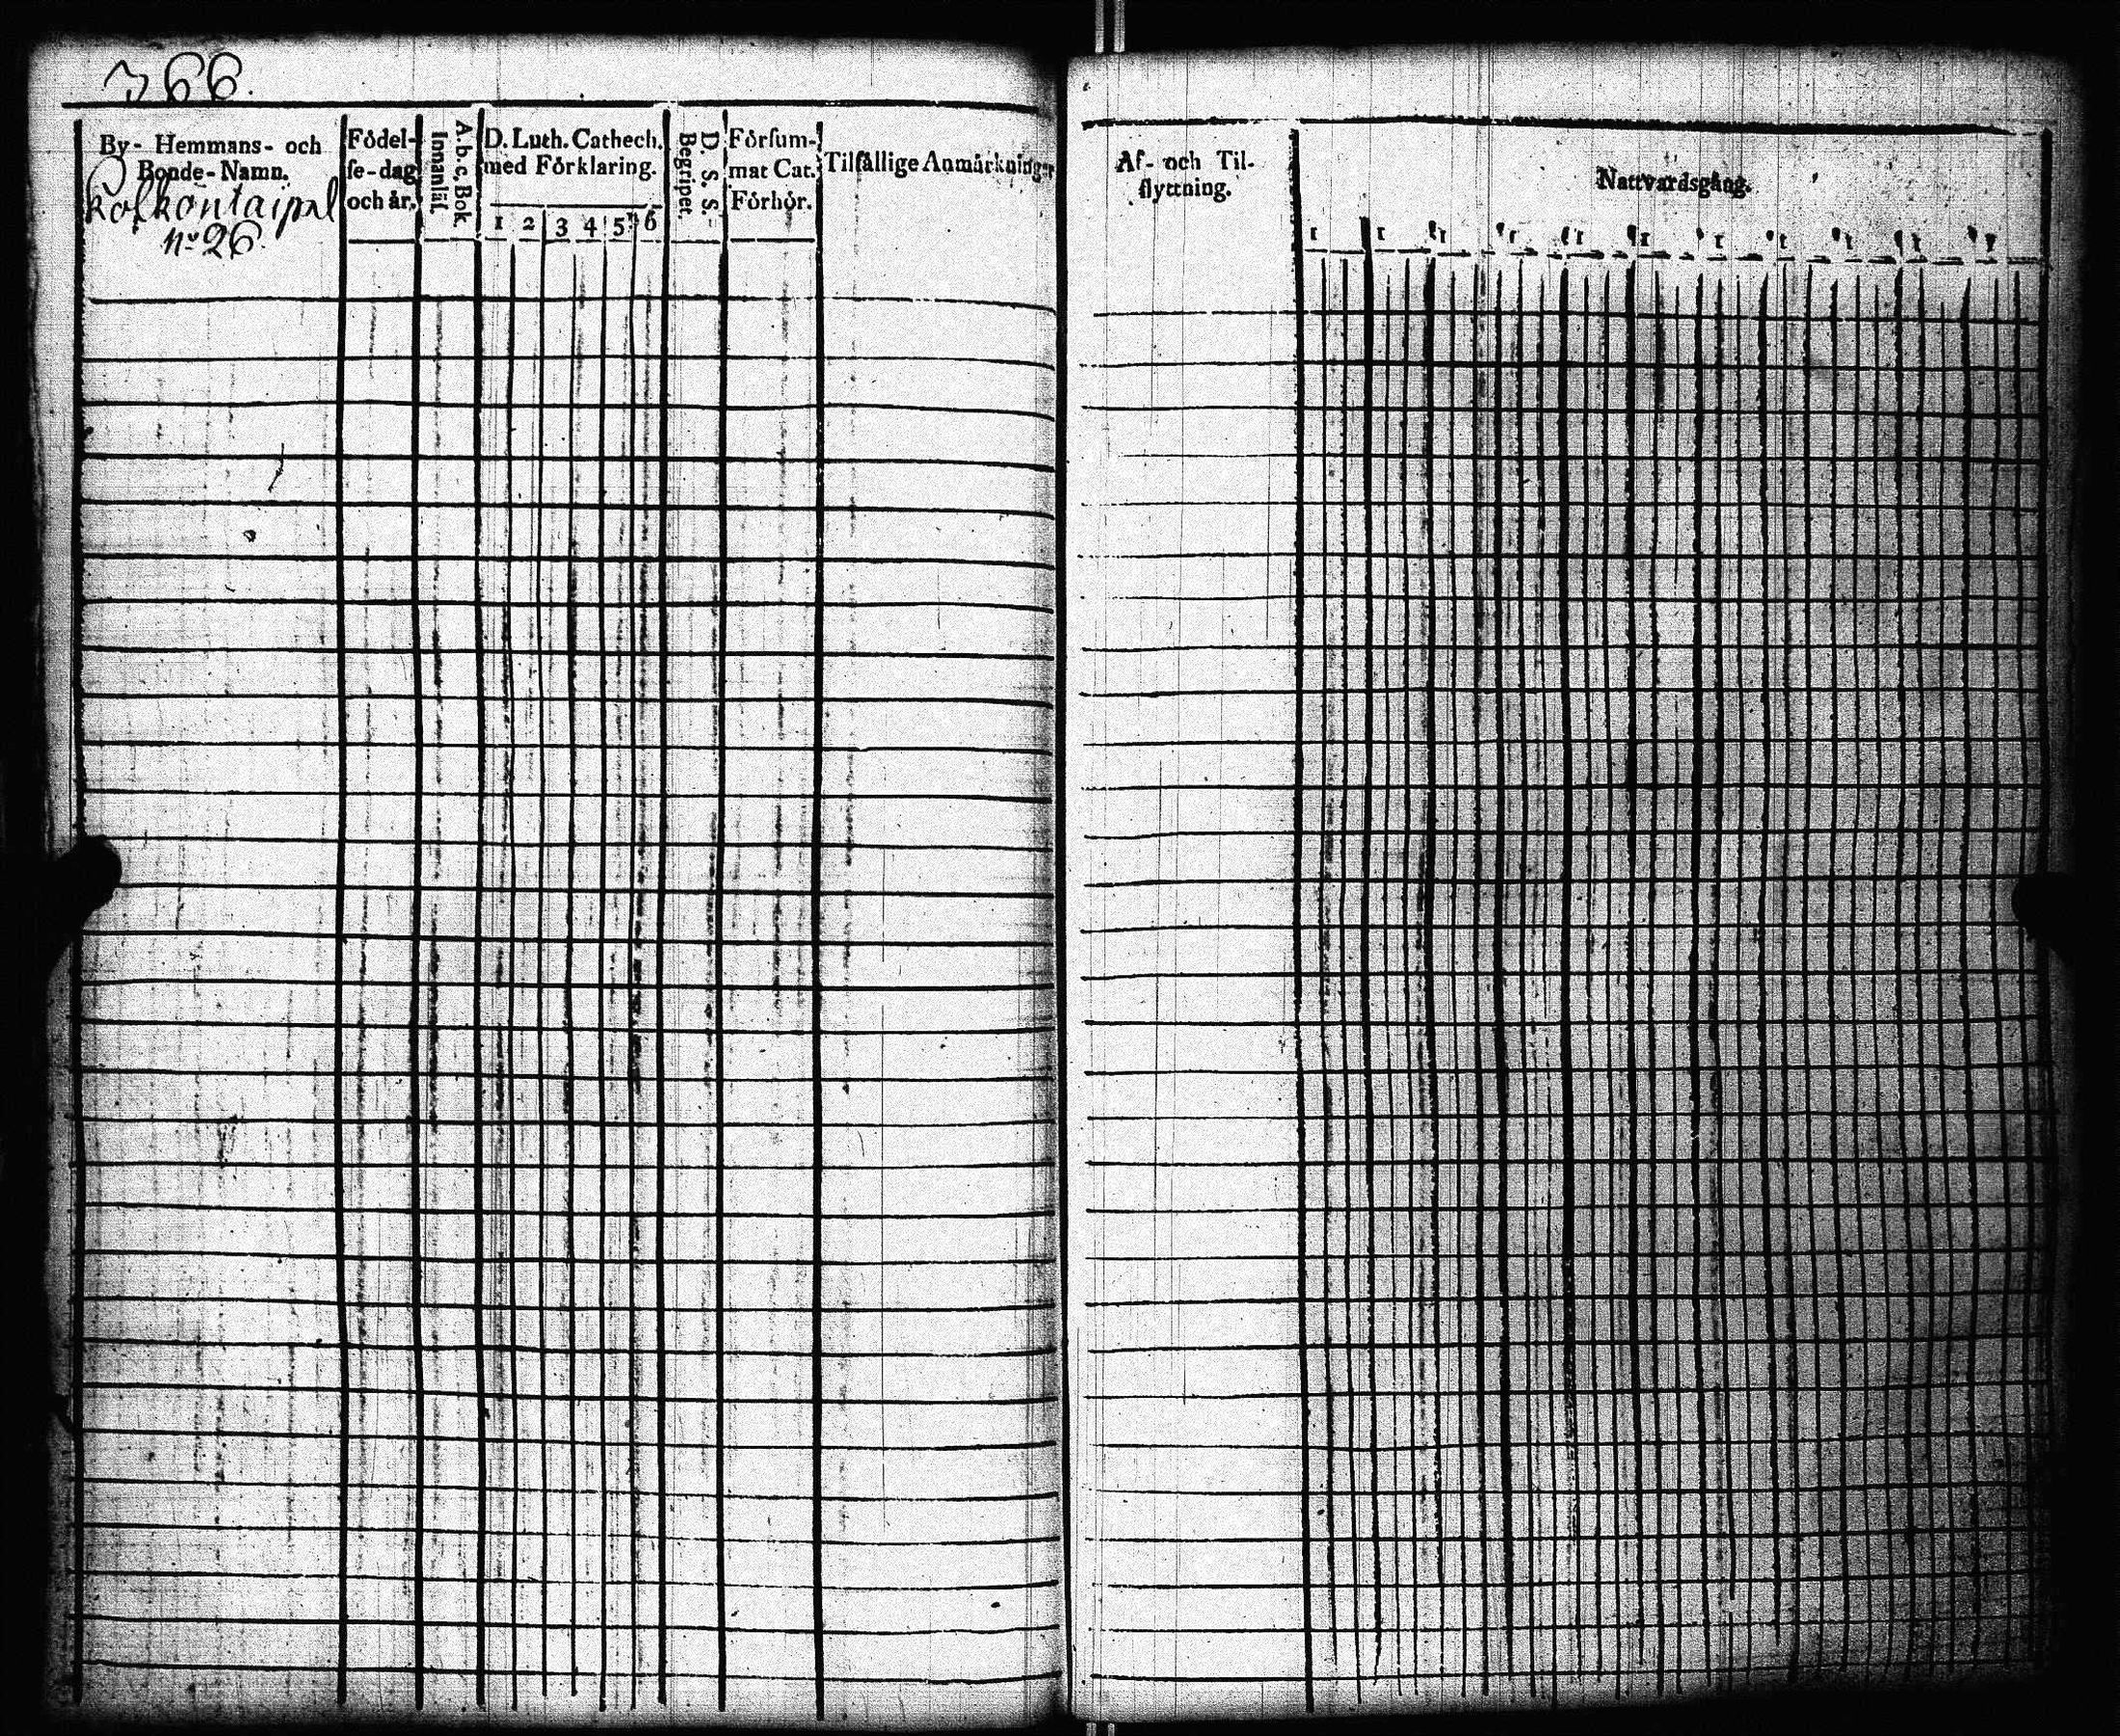 366.
By- Hemmans- och
Bonde-Namn.
Kolkontaipal
no 26.
Födel-
se-dag
och år.
A. b. c. Bok
Innanläs.
D. Luth. Cathech.
med Förklaring.
1 2 3 4 5 6
D. S. S.
Begripet.
Försum-
mat Cat.
Förhör.
Tilfällige Anmärkningar
Af- och Til-
flyttning.
Nattvardsgång.
1 1 1 1 1 1 1 1 1 1 1